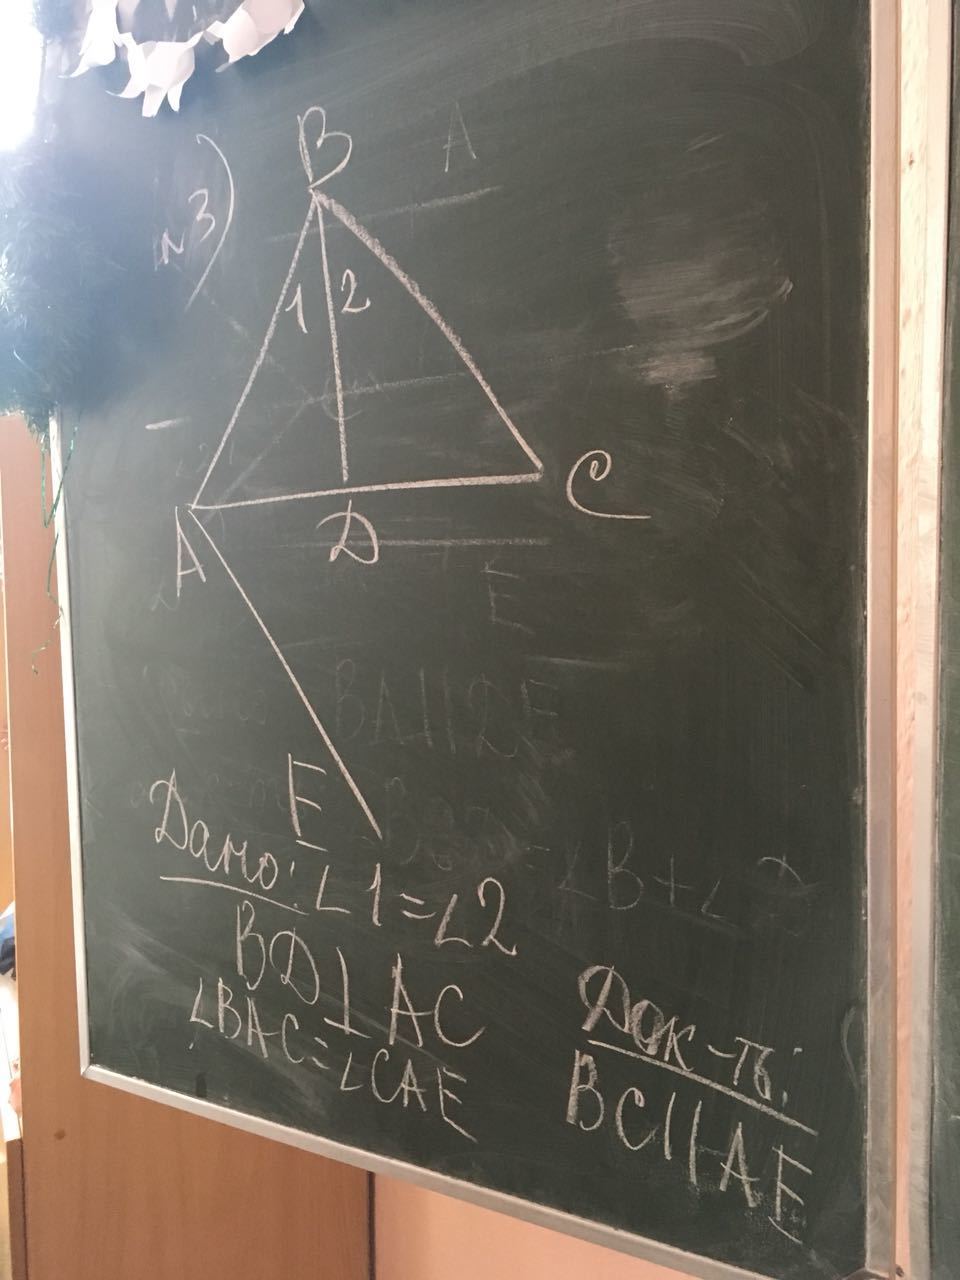 №3)
B
A
1 2
A
D
C
E
BA||DE
E
Дано: ∠1=∠2
∠B+∠D
BD⊥AC
∠BAC=∠CAE
Док-ть:
BC||AE